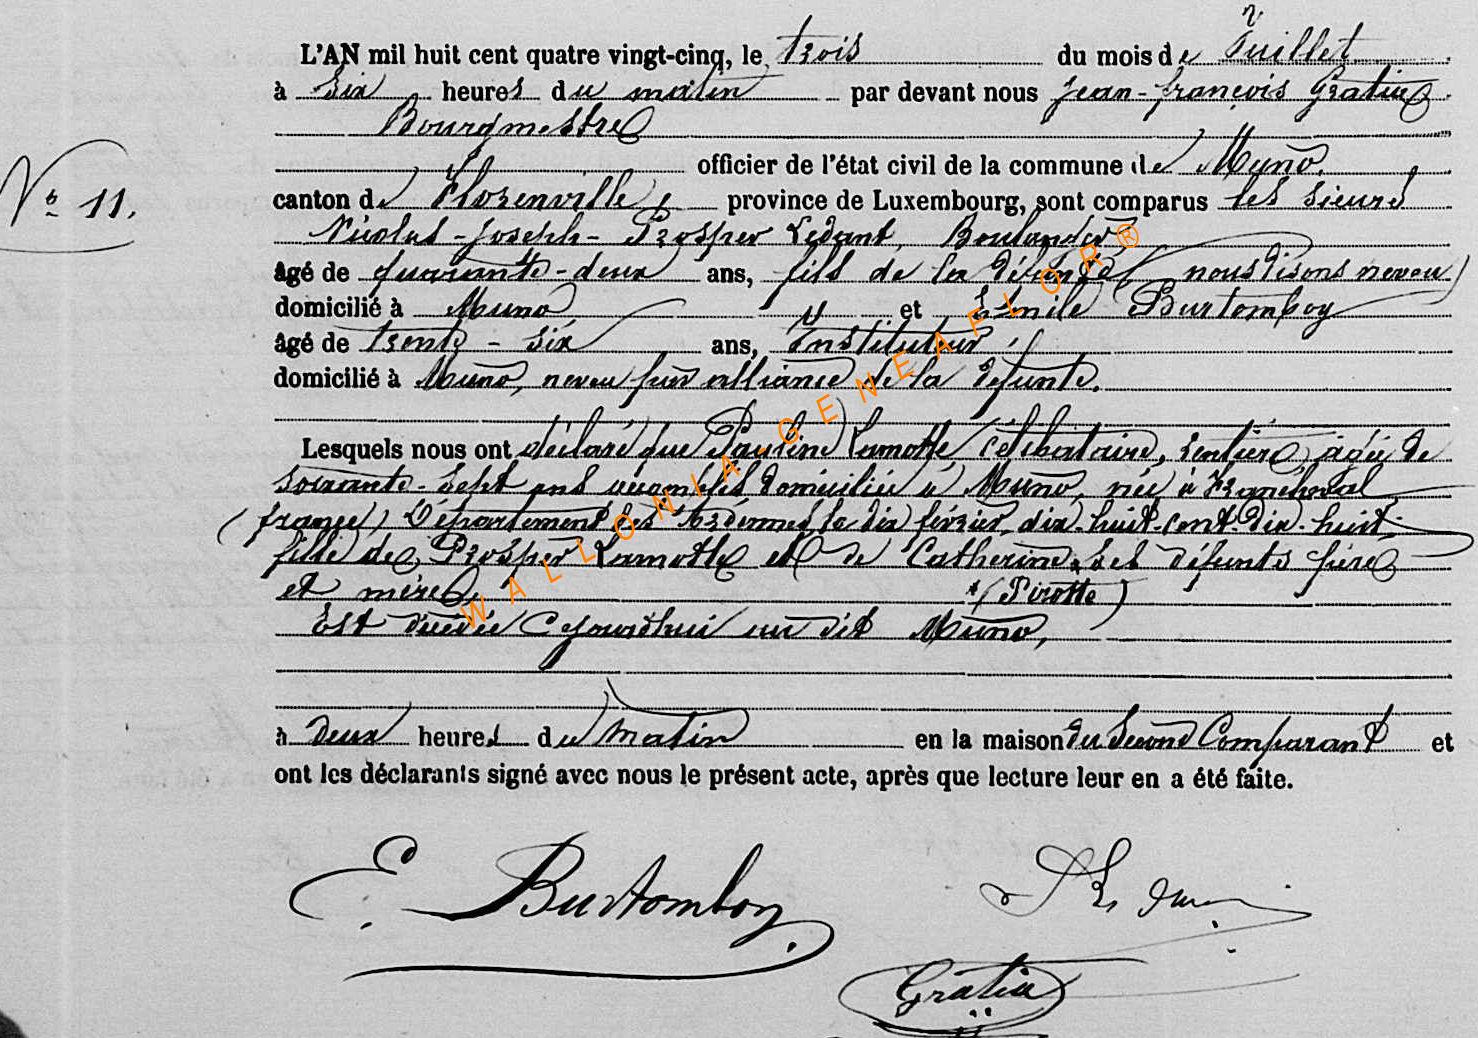 L'AN mil huit cent quatre vingt-cinq, le trois du mois de Juillet
à six heures du matin par devant nous Jean-françois Gratia
Bourgmestre
officier de l'état civil de la commune de Muno.
N° 11.
canton de Florenville, province de Luxembourg, sont comparus les sieurs
Nicolas-Joseph-Prosper Lédant, Boulanger
âgé de quarante-deux ans, fils de la défunte (nous disons neveu)
domicilié à Muno et Emile Burtomboy
âgé de trente-six ans, Instituteur,
domicilié à Muno, neveu par alliance de la défunte.
Lesquels nous ont déclaré que Pauline Lamotte célibataire, rentière, agée de
soixante-sept ans domiciliée à Muno, née à Francheval
(france) Département des Ardennes le dix février dix-huit-cent-dix-huit
fille de Prosper Lamotte et de Catherine ses défunts père
et mère, (Pirotte)
Est décédée Cejourd'hui au dit Muno,
à deux heures du matin en la maison du second Comparant et
ont les déclarants signé avec nous le présent acte, après que lecture leur en a été faite.
E. Burtomboy
Gratia
WALLONIA-GENEAFLOR®